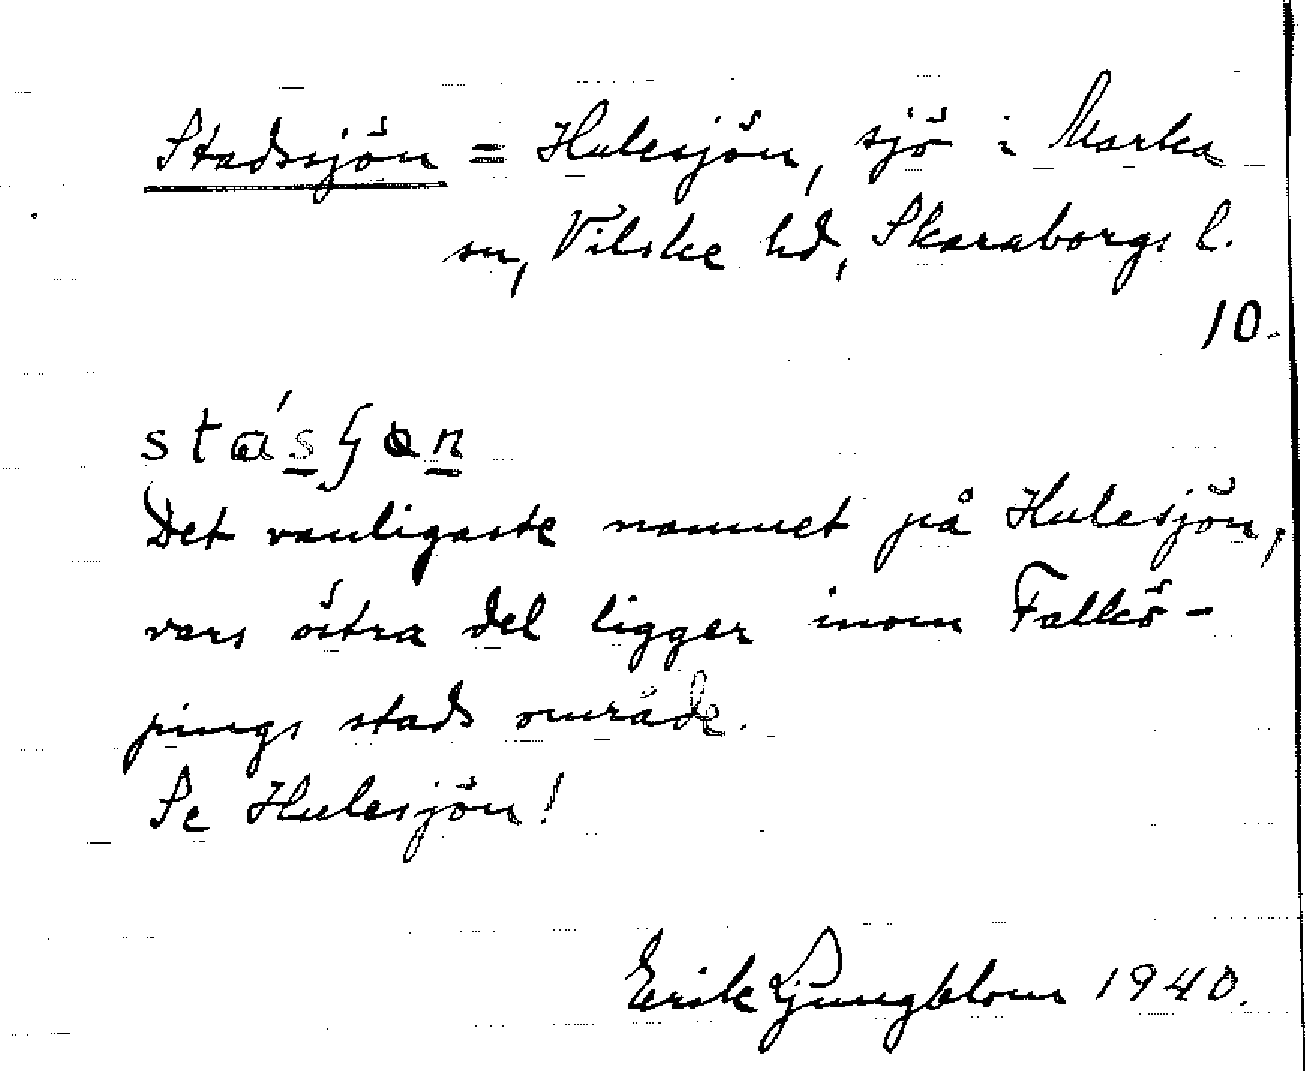 Stadssjön = Hulesjön, sjö i Marka
sn, Vilske hd, Skaraborgs l.
10.
Det vanligaste namnet på Hulesjön,
vars östra del ligger inom Falkö-
pings stads område.
Se Hulesjön!
Erik Ljungblom 1940.